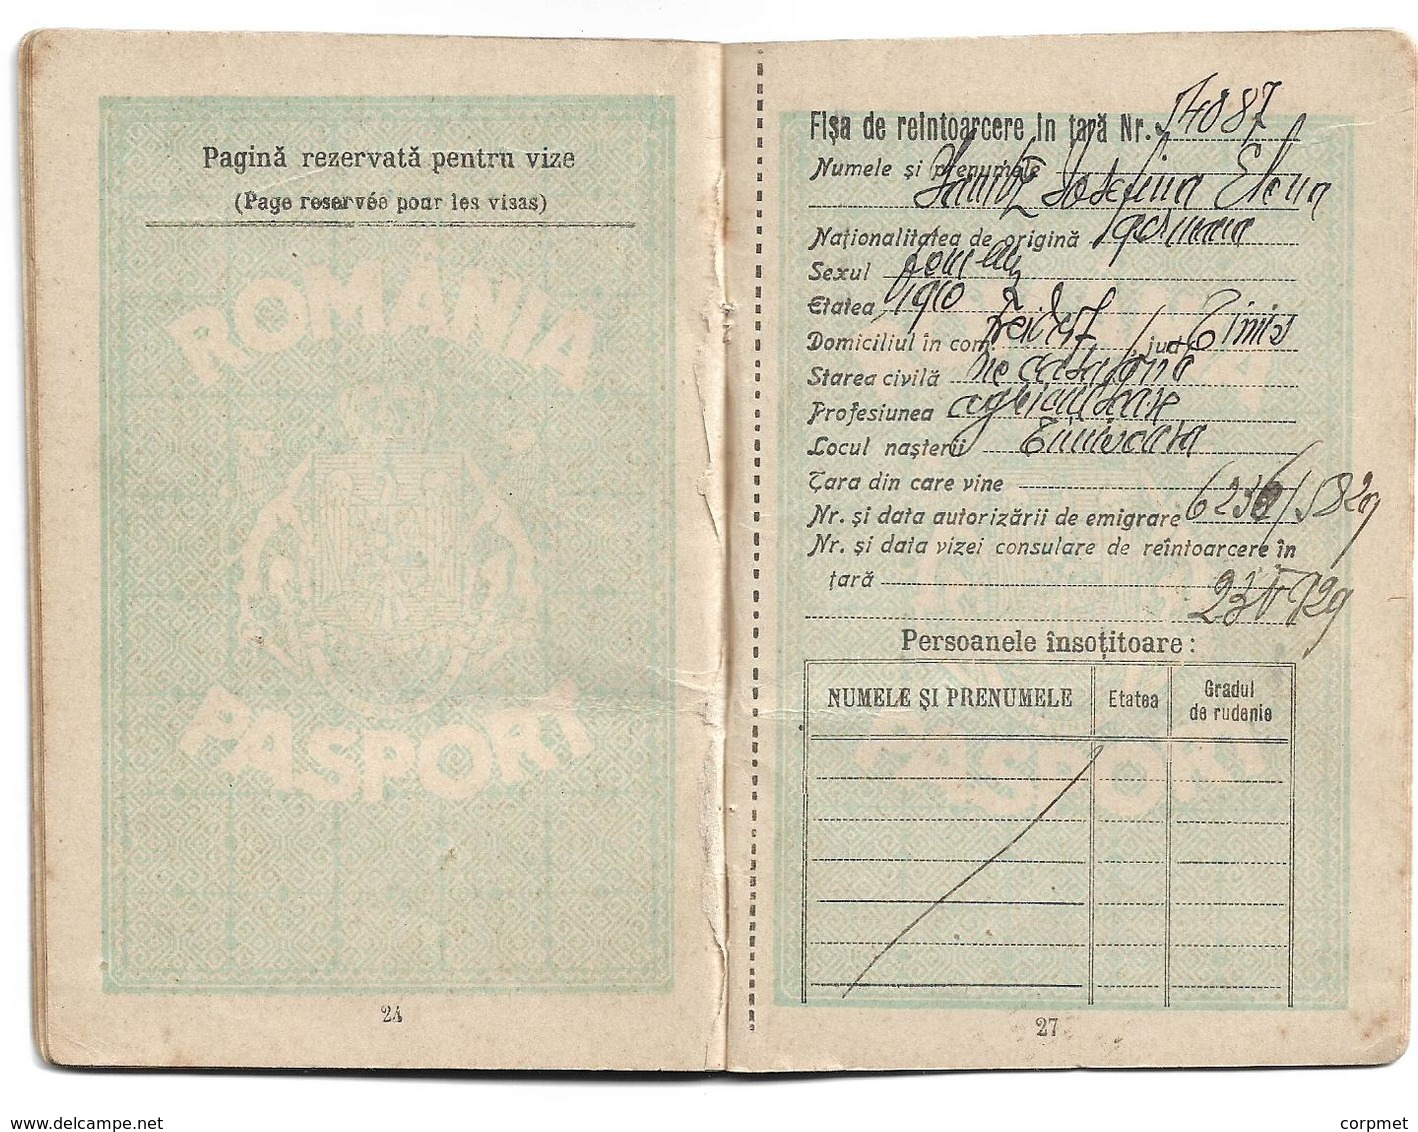 Pagină rezervată pentru vize
(Page reservée pour les visas)
ROMÂNIA
PAȘPORT
24
Fișa de reintoarcere in țară Nr. 14087
Numele și prenumele
Josefina Elena
Naționalitatea de origină germana
Sexul femeesc
Etatea 1910
Domiciliul în com. jud. Timiș
Starea civilă necăsătorită
Profesiunea agricultoare
Locul nașterii Timișoara
Țara din care vine
Nr. și data autorizării de emigrare
Nr. și data vizei consulare de reîntoarcere în
țară
Persoanele însoțitoare:
NUMELE ȘI PRENUMELE Etatea Gradul
de rudenie
27
www.delcampe.net
corpmet